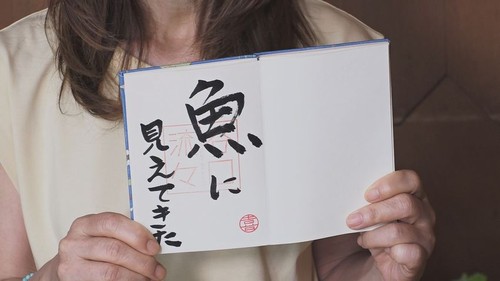 魚に
見えてきた